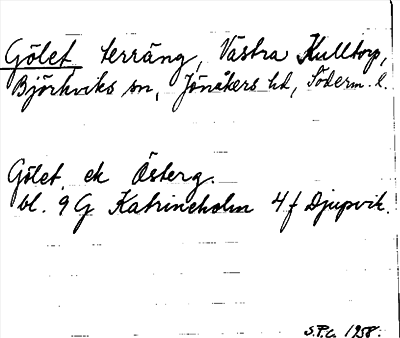 Gölet terräng, Västra Kulltorp,
Björkviks sn, Jönåkers hd, Söderm. l.
Gölet, ek Österg.
bl. 9 G Katrineholm 4 f Djupvik.
S.P.G. 1958.